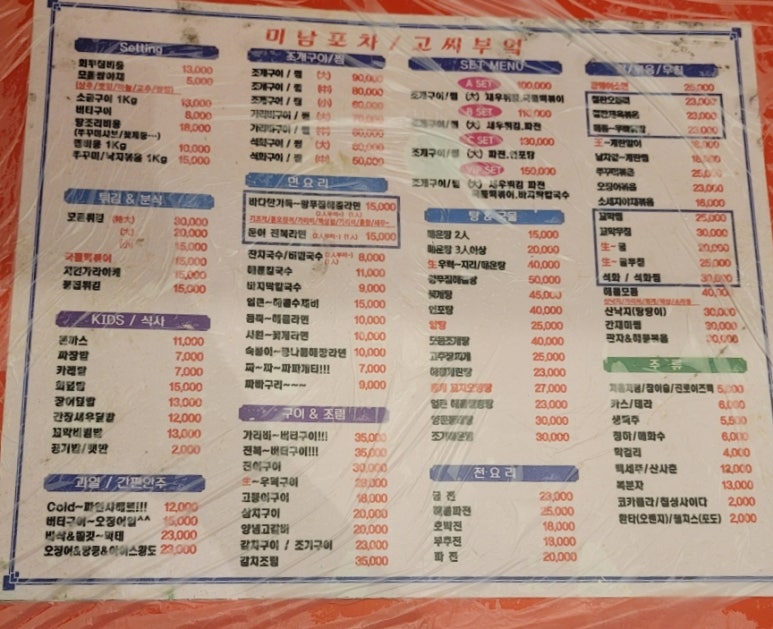 미남포차 / 고씨부엌
Setting
13,000
모듬쌈야채 5,000
소금구이 1Kg 13,000
버터구이 8,000
18,000
1Kg 10,000
쭈꾸미/낙지볶음 1Kg 15,000
튀김 & 분식
모듬튀김 (特大) 30,000
(大) 20,000
(小) 15,000
국물떡볶이 15,000
치킨가라아게 15,000
15,000
KIDS / 식사
돈까스 11,000
짜장밥 7,000
카레밥 7,000
회덮밥 15,000
장어덮밥 13,000
간장새우덮밥 12,000
꼬막비빔밥 13,000
공기밥/햇반 2,000
과일 / 간편안주
Cold~파인샤베트!!! 12,000
버터구이~오징어입^^ 15,000
23,000
오징어&땅콩&아이스황도 23,000
조개구이/찜
조개구이 / 찜 (大) 90,000
조개구이 / 찜 (中) 80,000
조개구이 / 찜 (小) 60,000
가리비구이 / 찜 (大) 70,000
가리비구이 / 찜 60,000
석화구이 / 찜 (大) 60,000
석화구이 / 찜 50,000
면요리
15,000
문어 전복라면 15,000
잔치국수/비빔국수 8,000
해물칼국수 11,000
바지락칼국수 9,000
얼큰~해물수제비 15,000
듬뿍~해물라면 10,000
시원~꽃게라면 10,000
속풀이~콩나물해장라면 10,000
짜~짜~짜파게티!!! 7,000
짜빠구리~~~ 9,000
구이 & 조림
가리비~버터구이!!! 35,000
전복~버터구이!!! 35,000
장어구이 30,000
生~우럭구이
고등어구이 18,000
삼치구이 20,000
양념고갈비 20,000
갈치구이 / 조기구이 23,000
갈치조림 35,000
SET MENU
A SET 100,000
조개구이/찜 (大) 새우튀김.국물떡볶이
B SET 110,000
조개구이/찜 (大) 새우튀김.파전
C SET 130,000
조개구이/찜 (大) 파전.연포탕
150,000
조개구이/찜 (大) 새우튀김 파전
국물떡볶이.바지락칼국수
탕 & 모듬
매운탕 2人 15,000
매운탕 3人이상 20,000
生 우럭~지리/매운탕 40,000
50,000
꽃게탕 45,000
연포탕 40,000
알탕 25,000
모듬조개탕 40,000
고추장찌개 25,000
해물계란탕 23,000
27,000
얼큰 해물짬뽕탕 23,000
30,000
조기매운탕 30,000
전요리
김 전 23,000
해물파전 25,000
호박전 18,000
부추전 18,000
파 전 20,000
25,000
23,000
23,000
23,000
生~계란말이 18,000
18,000
쭈꾸미볶음 25,000
오징어볶음 23,000
소세지야채볶음 18,000
꼬막찜 25,000
꼬막무침 30,000
生~굴 20,000
生~굴무침 25,000
석화 / 석화찜 30,000
해물모듬 40,000
산낙지(탕탕이) 30,000
간재미찜 30,000
관자&해물볶음 30,000
주 류
처음처럼/참이슬/진로이즈백
카스/테라 6,000
생맥주 5,500
청하/매화수 6,000
막걸리 4,000
백세주/산사춘 12,000
복분자 13,000
코카콜라/칠성사이다 2,000
환타(오렌지)/웰치스(포도) 2,000